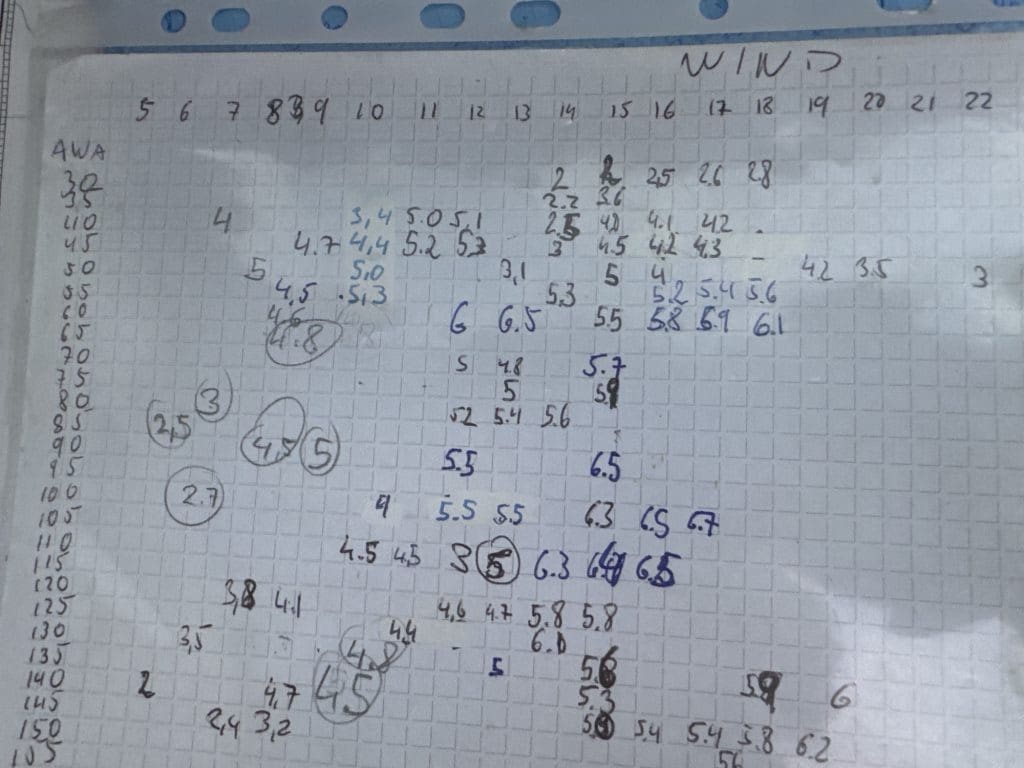 WIND
5 6 7 8 9 10 11 12 13 14 15 16 17 18 19 20 21 22
AWA
30 2 2 2.5 2.6 2.8
35 2.2 3.6
40 4 3,4 5.0 5,1 2.5 4.1 4.2
45 4.7 4,4 5.2 5.3 3 4.5 4.2 4.3
50 5 5.0 3,1 5 4 4.2 3.5 3
55 4,5 5,3 5.3 5.2 5.4 5.6
60 4,6 6 6.5 5.5 5.8 5.9 6.1
65 4.8
70 5 4.8 5.7
75 5 5.9
80 3 5.2 5.4 5.6
85 2,5
90 4,5 5
95 5.5 6.5
100 2.7
105 9 5.5 5.5 6.3 6.5 6.7
110
115 4.5 4,5 5 6.3 6.5
120
125 3,8 4.1 4,6 4.7 5.8 5.8
130 3,5 4,4 6.0
135 5 5.6
140 2 4,7 4.5 5.9 6
145 5.3
150 2,4 3,2 5.4 5.4 5.8 6.2
155 5.6